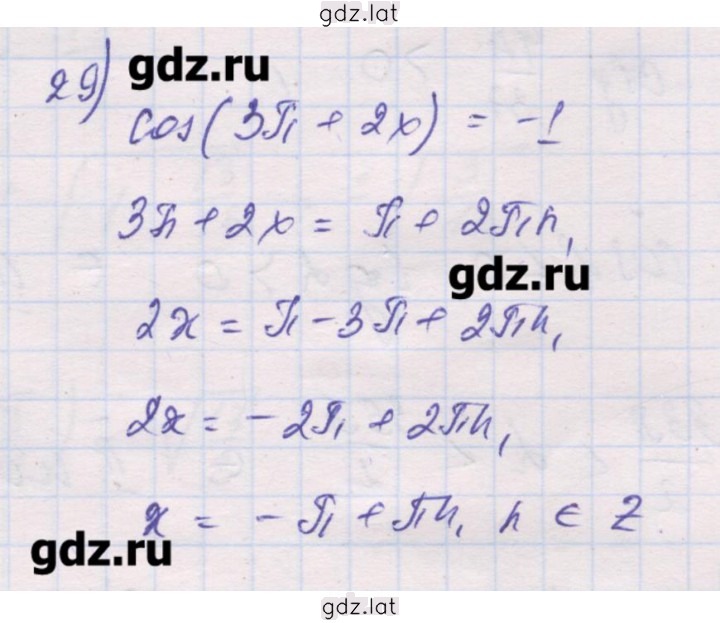 gdz.lat
29) gdz.ru
cos(3π + 2x) = -1
3π + 2x = π + 2πn,
gdz.ru
2x = π - 3π + 2πn,
2x = -2π + 2πn,
x = -π + πn, n ∈ Z
gdz.ru
gdz.lat